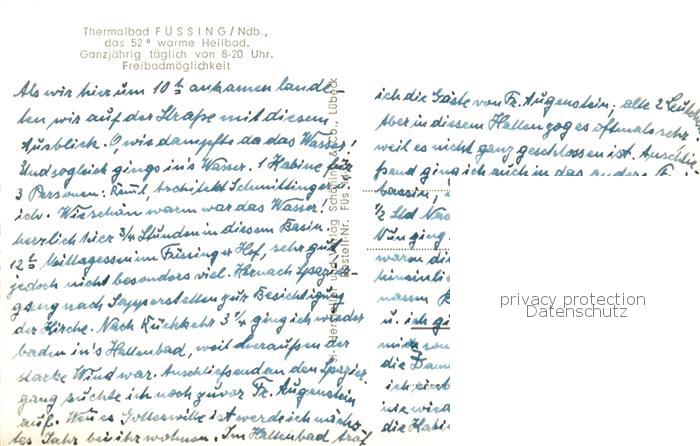 Thermalbad FÜSSING/Ndb.,
das 52° warme Heilbad.
Ganzjährig täglich von 8-20 Uhr.
Freibadmöglichkeit
Als wir hier um 10 h ankamen lande-
ten wir auf der Straße mit diesem
Ausblick. O wie dampfte da das Wasser!
Und sogleich gings in's Wasser. 1 Kabine für
3 Personen: Architekt Schmittinger
ich. Wie schön warm war das Wasser!
herrlich hier 3/4 Stunden in diesem Basin.
12 h Mittagessen im Füssinger Hof, sehr gut
jedoch nicht besonders viel. Hernach Spazier-
gang nach Safferstetten zur Besichtigung
der Kirche. Nach Rückkehr 3 1/4 ging ich wieder
baden in's Hallenbad, weil heraußen der
starke Wind war. Anschließend an den Spazier-
gang suchte ich noch zuvor Fr. Augenstein
auf. Wenn es Gotteswille ist werde ich näch-
stes Jahr bei ihr wohnen. Im Hallenbad traf
ich die Gäste von Fr. Augenstein: alte 2 Leutch
Aber in diesem Hallen zog es oftmals sehr
weil es nicht ganz geschlossen ist. Anschlie-
ßend ging ich auch in das andere
bassin,
1/2 Std
Nun ging
waren die
hineinlic
nasse
u. ich gi
mich
die Dam
ich
nie wied
die Kabi
Verlag Schöning & Co., Lübeck
Bestell-Nr. Füs
privacy protection
Datenschutz